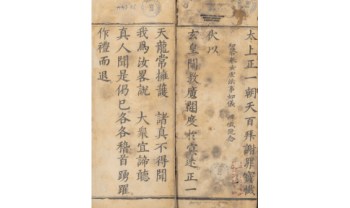 太上正一朝天百拜謝罪寶懺
伏以
玄皇闡教廣開度 正一
天龍常擁護 諸真不得聞
我爲汝畧説 大衆宜諦聽
真人聞是偈已各各稽首踴躍
作禮而退